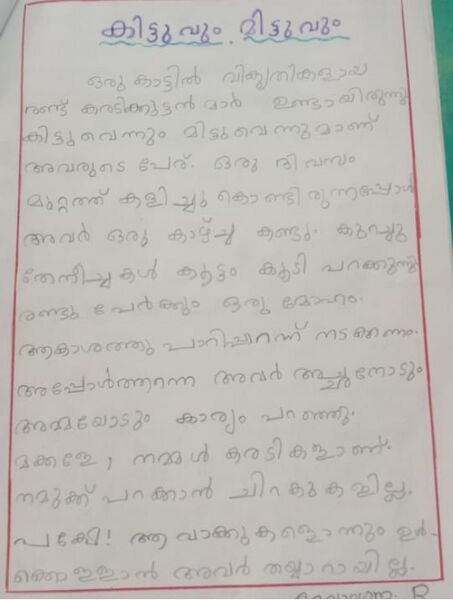 കിട്ടുവും മിട്ടുവും
ഒരു കാട്ടിൽ വികൃതികളായ
രണ്ട് കരടിക്കുട്ടൻമാർ ഉണ്ടായിരുന്നു
കിട്ടുവെന്നും മിട്ടുവെന്നുമാണ്
അവരുടെ പേര്. ഒരു ദിവസം
മുറ്റത്ത് കളിച്ചു കൊണ്ടിരുന്നപ്പോൾ
അവർ ഒരു കാഴ്ച്ച കണ്ടു. കുറച്ചു
തേനീച്ചകൾ കൂട്ടം കൂടി പറക്കുന്നു
രണ്ടു പേർക്കും ഒരു മോഹം.
ആകാശത്തു പാറിപ്പറന്ന് നടക്കണം.
അപ്പോൾത്തന്നെ അവർ അച്ഛനോടും
അമ്മയോടും കാര്യം പറഞ്ഞു.
മക്കളേ, നമ്മൾ കരടികളാണ്.
നമുക്ക് പറക്കാൻ ചിറകുകളില്ല.
പക്ഷേ! ആ വാക്കുകളൊന്നും ഉൾ-
ക്കൊള്ളാൻ അവർ തയ്യാറായില്ല.
R